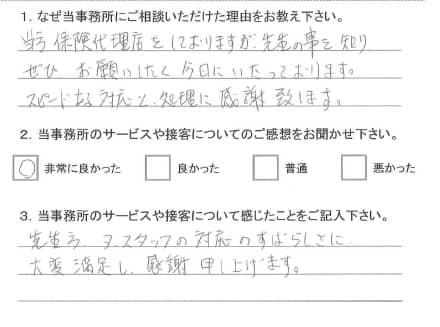 1. なぜ当事務所にご相談いただけた理由をお教え下さい。
当方 保険代理店をしておりますが、先生の事を知り
ぜひ お願いしたく、今日にいたっております。
スピードある対応と、処理に感謝致します。
2. 当事務所のサービスや接客についてのご感想をお聞かせ下さい。
○ 非常に良かった 良かった 普通 悪かった
3. 当事務所のサービスや接客について感じたことをご記入下さい。
先生方、又、スタッフの対応のすばらしさに
大変満足し、感謝申し上げます。